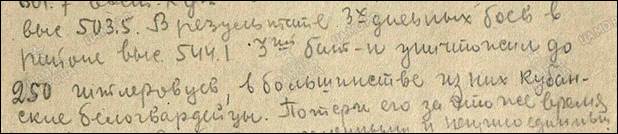 выс 503.5. В результате 3х дневных боев в
районе выс. 544.1 3ий бат-н уничтожил до
250 гитлеровцев, в большинстве из них кубан-
ские белогвардейцы. Потери его за это же время